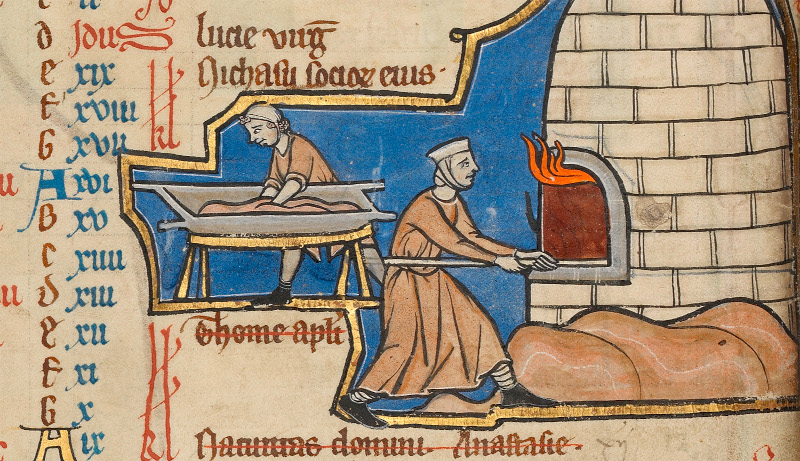 d Idus lucie virg̅
e xix Nichasii socior eius.
f xviii
G xvii kl
A xvi
B xv
c xiiii
d xiii
e xii Thome apli
f xi
G x kl
A ix Natiuitas domini. Anastasie.